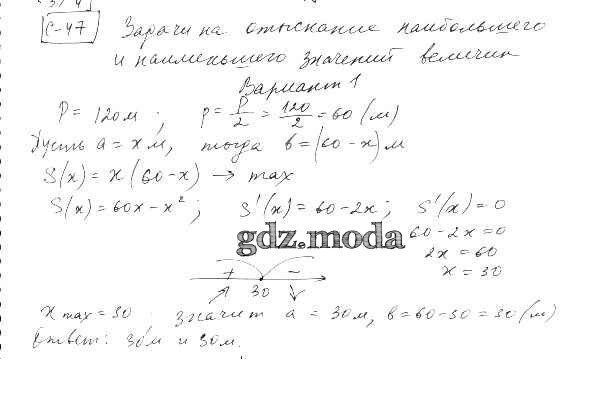 С-47 Задачи на отыскание наибольшего
и наименьшего значений величин
Вариант 1
P = 120м ; p = P/2 = 120/2 = 60 (м)
Пусть a = x м, тогда b = (60 - x) м
S(x) = x (60 - x) → max
S(x) = 60x - x² ; S'(x) = 60 - 2x ; S'(x) = 0
gdz.moda
60 - 2x = 0
2x = 60
x = 30
+ -
30
x max = 30 значит a = 30м, b = 60 - 30 = 30 (м)
Ответ: 30м и 30м.